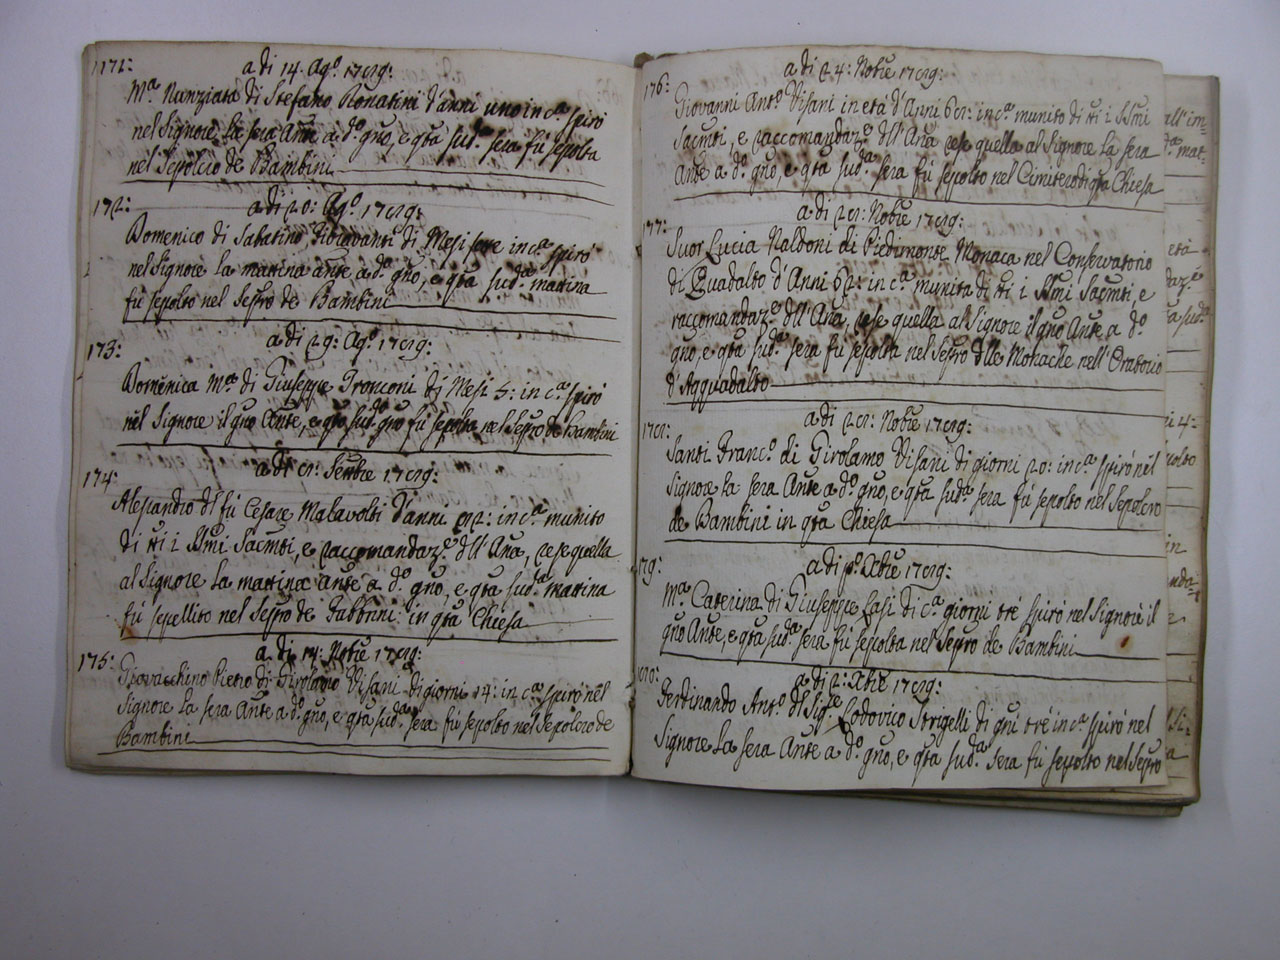 171:
a di 14. Agº. 17
Mª. Nunziata di Stefano Donatini d'anni uno in cª. spirò
nel Signore la sera Ante a dº. gno, e qta sudª. sera fù sepolta
nel Sepolcro de Bambini
172:
a di 20: Agº. 17
Domenico di Sabatino di Mesi sette in cª. spirò
nel Signore la mattina ante a dº. gno, e qta sudª. mattina
fù sepolto nel Sepro de Bambini
173:
a di 29: Agº. 17
Domenica Mª. di Giuseppe Tronconi di Mesi 5: in cª. spirò
nel Signore il gno Ante, e qto sudº. gno fù sepolta nel Sepro de Bambini
174:
a di Settbre 17
Alessandro dl fù Cesare Malavolti d'anni in cª. munito
di tti i SSmi Sacmti, e raccomandazº. dll' Ana, rese quella
al Signore la mattina ante a dº. gno, e qta sudª. mattina
fù sepellito nel Sepro de Gabbrini: in qta Chiesa
175:
a di Nobre 17
Giovacchino Pietro di Girolamo Visani di giorni 14: in cª. spirò nel
Signore la sera Ante a dº. gno, e qta sudª. sera fù sepolto nel Sepolcro de
Bambini
176:
a di 24: Nobre 17
Giovanni Antº. Visani in età d'Anni in cª. munito di tti i SSmi
Sacmti, e raccomandazº. dll' Ana rese quella al Signore la sera
Ante a dº. gno, e qta sudª. sera fù sepolto nel Cimitero di qta Chiesa
177:
a di Nobre 17
Suor Lucia Naldoni di Piedimonte Monaca nel Conservatorio
di Guadalto d'Anni in cª. munita di tti i SSmi Sacmti, e
raccomandazº. dll' Ana, rese quella al Signore il gno Ante a dº.
gno, e qta sudª. sera fù sepolta nel Sepro dlle Monache nell' Oratorio
d'Agguadalto
a di Nobre 17
Santi Francº. di Girolamo Visani di giorni 20: in cª. spirò nel
Signore la sera Ante a dº. gno, e qta sudª. sera fù sepolto nel Sepolcro
de Bambini in qta Chiesa
a di pº. Xbre 17
Mª. Caterina di Giuseppe Lasi di cª. giorni tré spirò nel Signore il
gno Ante, e qta sudª. sera fù sepolta nel Sepro de Bambini
a di 2: Xbre 17
Ferdinando Antº. dl Sigre Lodovico Strigelli di gni tre in cª. spirò nel
Signore la sera Ante a dº. gno, e qta sudª. sera fù sepolto nel Sepro